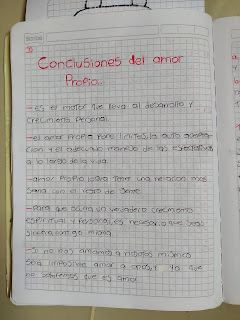 Conclusiones del amor
Propio..
- es el motor que lleva al desarrollo y
crecimiento personal.
- es amor propio pone limites, la auto acepta-
cion y el adecuado manejo de las espectativas
a lo largo de la vida.
- amor propio logra tener una relacion mas
sana con el resto de gente
- para que ocurra un verdadero crecimiento
espiritual y personal es necesario que seas
sincera contigo misma
- si no nos amamos a nosotros mismos
sera imposible amar a otros, ya que
no sabremos que es amor.